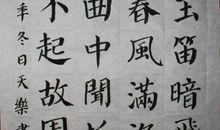 玉笛暗飛
春風滿洛
曲中聞
不起故園
季冬日天樂書